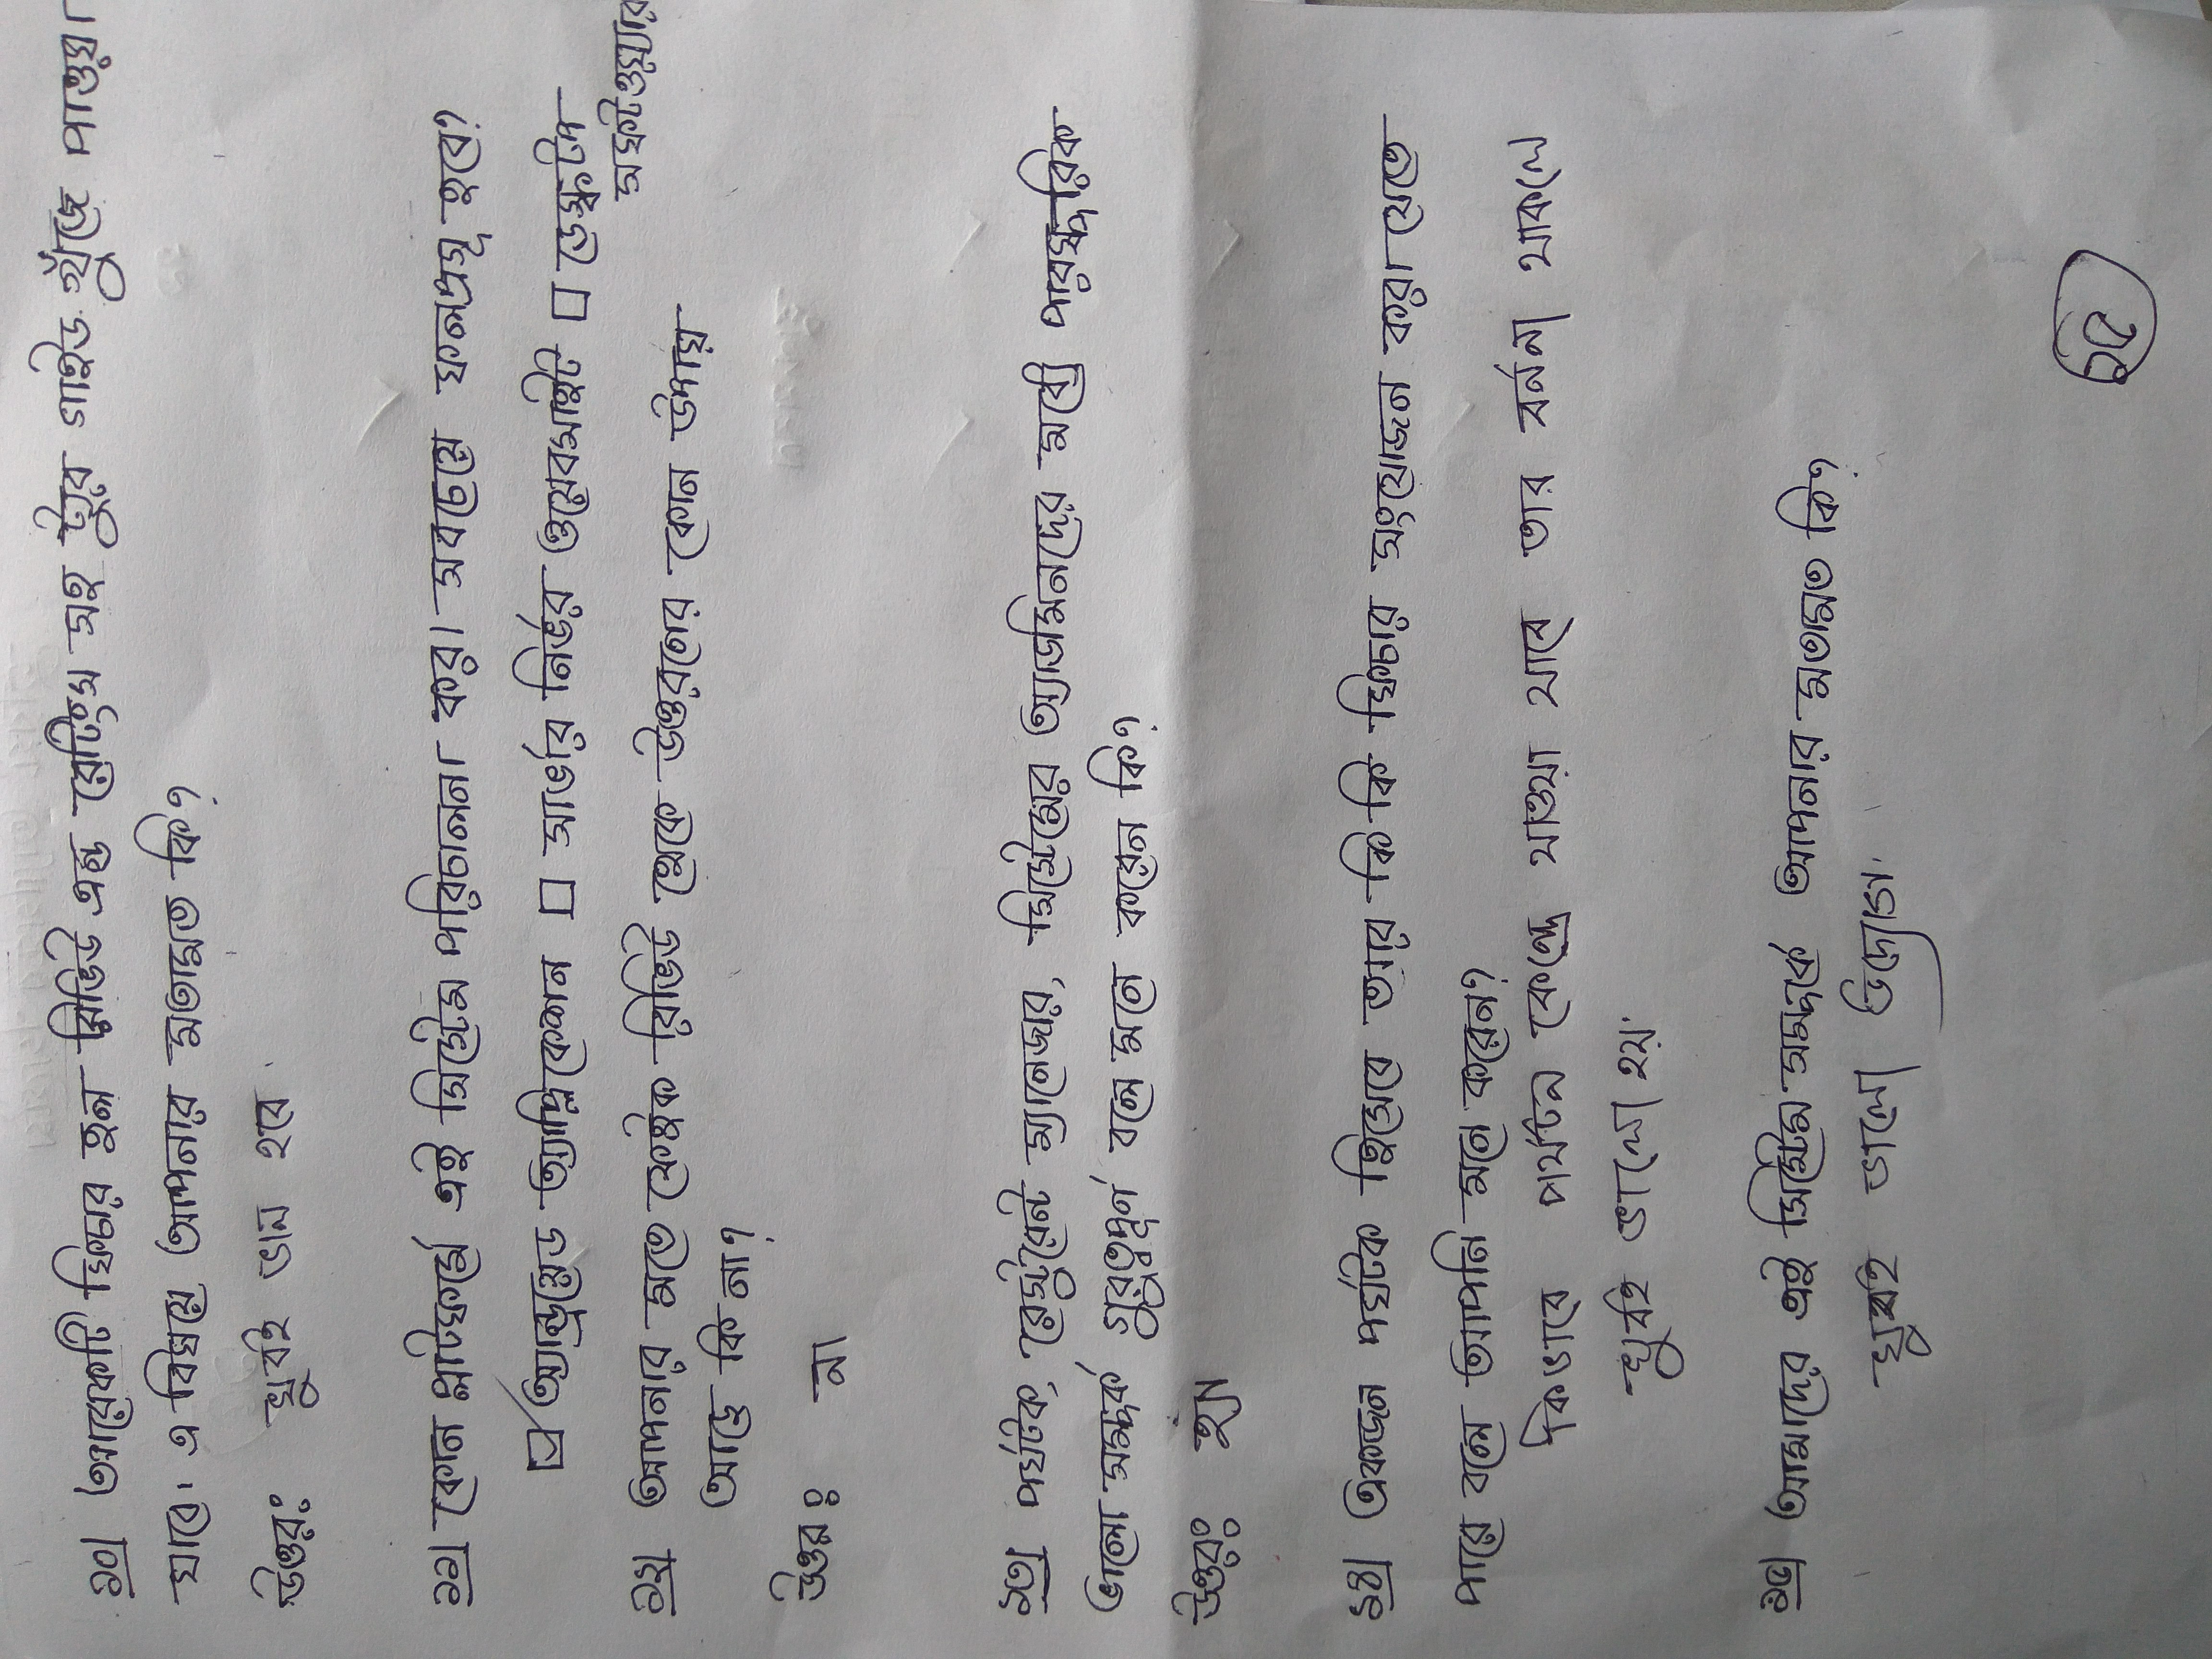 ১০| আরেকটি ফিচার হল রিভিউ এন্ড রেটিংস সহ ট্যুর গাইড খুঁজে পাওয়া
যাবে। এ বিষয়ে আপনার মতামত কি?
উত্তর: খুবই ভাল হবে।
১১| কোন প্লাটফর্মে এই সিস্টেম পরিচালনা করা সবচেয়ে ফলপ্রসূ হবে?
☑ অ্যান্ড্রয়েড অ্যাপ্লিকেশন ☐ সার্ভার নির্ভর ওয়েবসাইট ☐ ডেস্কটপ
সফটওয়্যার
১২| আপনার মতে ফেইক রিভিউ থেকে উত্তরণের কোন উপায়
আছে কি না?
উত্তর: না
১৩| পর্যটক, রেস্টুরেন্ট ম্যানেজার, সিস্টেমের অ্যাডমিনদের মধ্যে পারস্পরিক
ভালো সম্পর্ক গুরুত্বপূর্ণ বলে মনে করেন কি?
উত্তর: হ্যাঁ
১৪| একজন পর্যটক হিসেবে আর কি কি ফিচার সংযোজন করা যেতে
পারে বলে আপনি মনে করেন?
কিভাবে পর্যটন কেন্দ্রে যাওয়া যাবে তার বর্ননা থাকলে
খুবই ভালো হয়।
১৫| আমাদের এই সিস্টেম সম্পর্কে আপনার মতামত কি?
খুবই ভালো উদ্যোগ।
১২